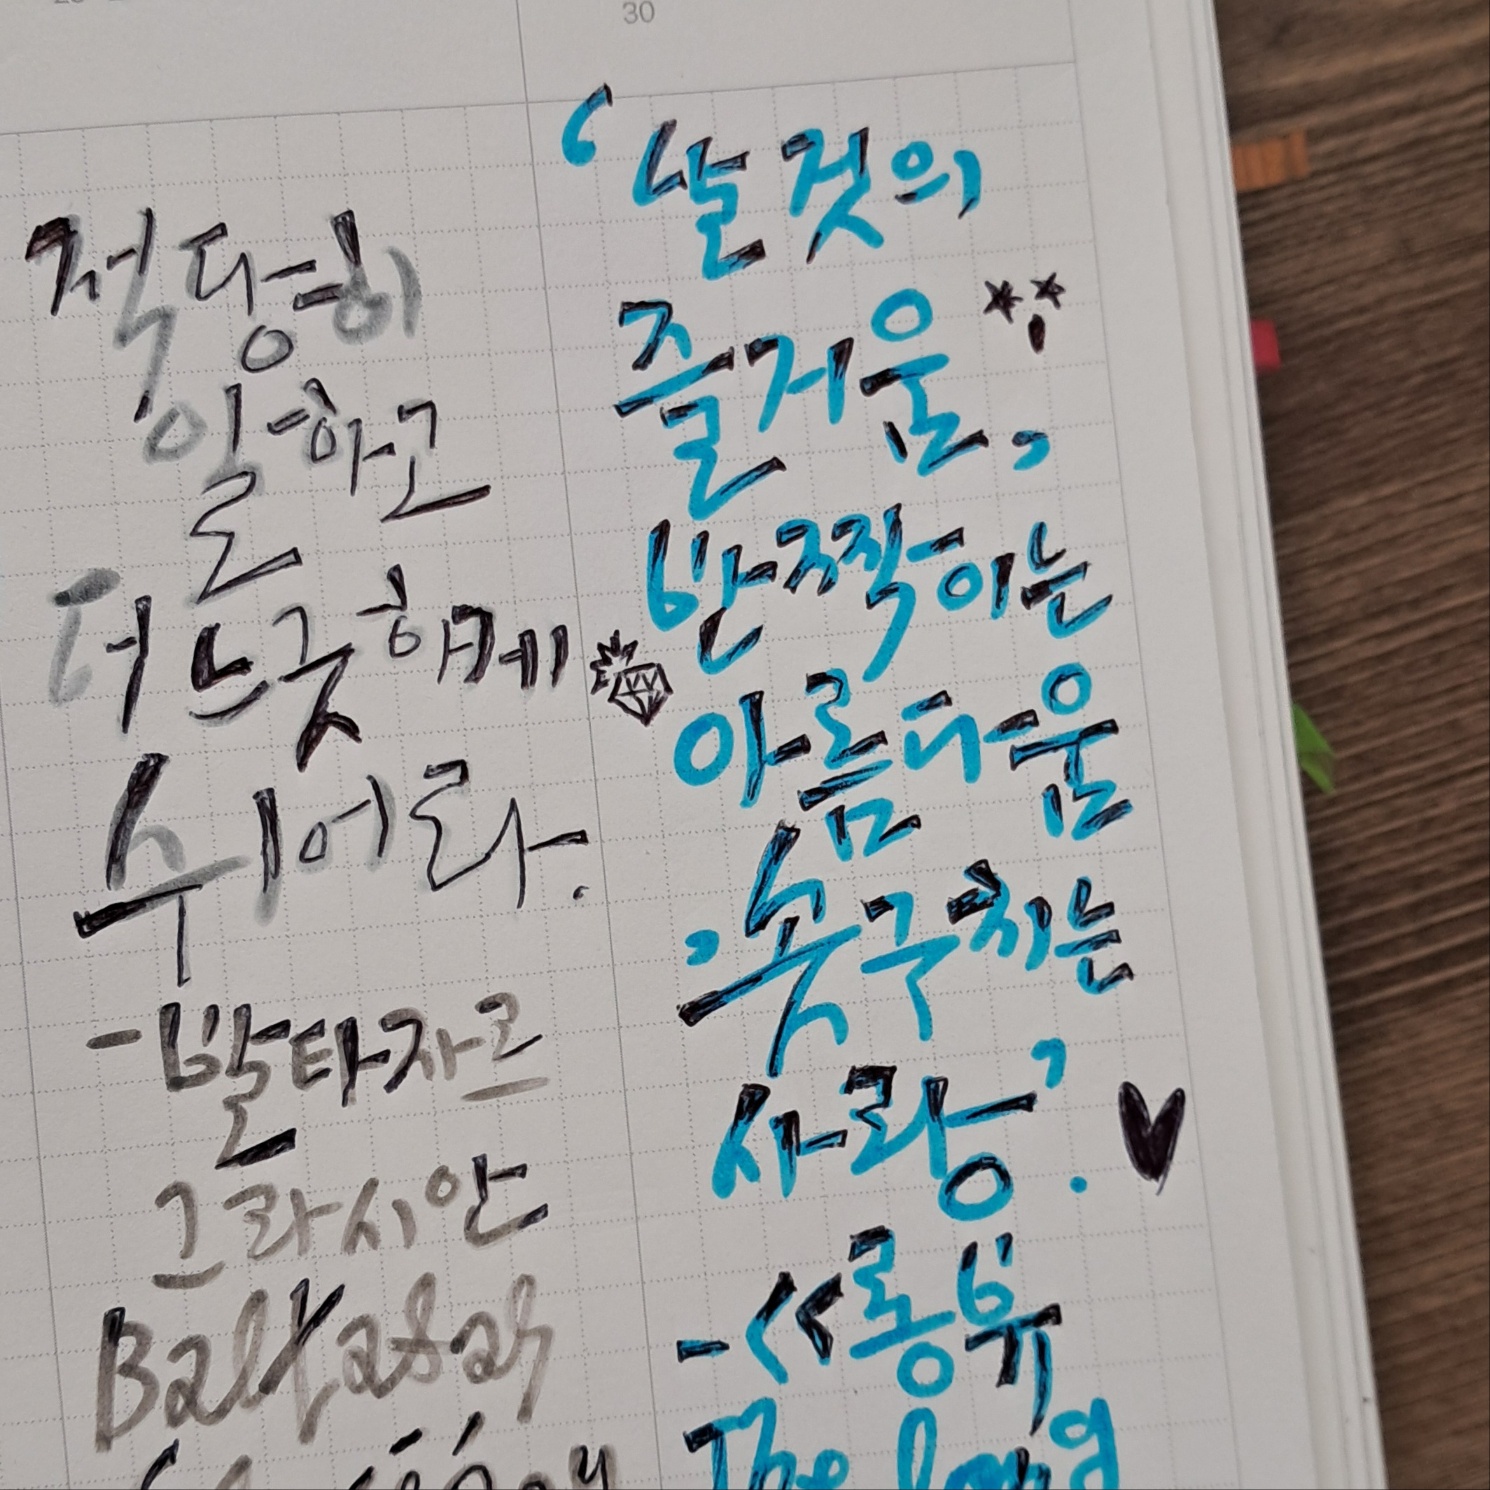 30
적당히
일하고
더 느긋하게
쉬어라.
-발타자르
그라시안
Baltasar
'날것의
즐거움,
반짝이는
아름다움
, 솟구치는
사랑'.
-<<롱뷰
The Long